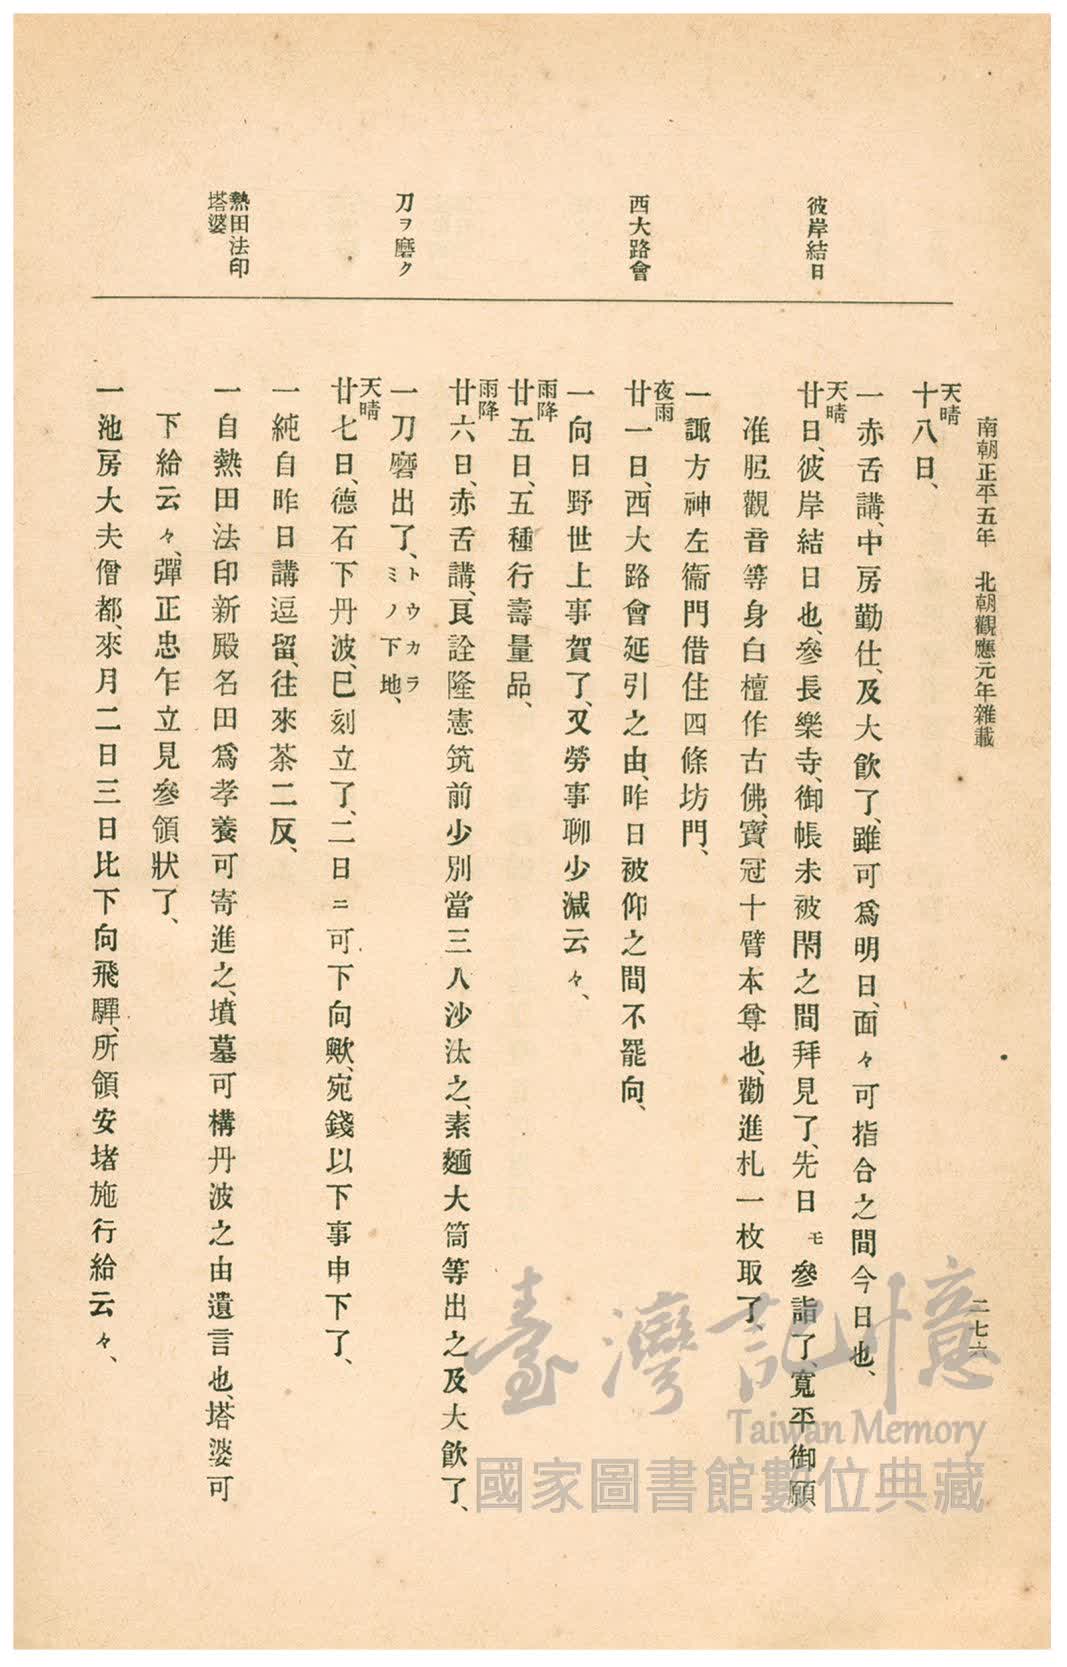 南朝正平五年　北朝觀應元年雜載
二七六
彼岸結日
西大路會
刀ヲ磨ク
熱田法印
塔婆
天晴
十八日、
一赤舌講、中房勤仕、及大飮了、雖可爲明日、面々可指合之間今日也、
天晴
廿日、彼岸結日也、參長樂寺、御帳未被閇之間拜見了、先日モ參詣了、寬平御願
准胝觀音等身白檀作古佛、寶冠十臂本尊也、勸進札一枚取了、
一諏方神左衞門借住四條坊門、
夜雨
廿一日、西大路會延引之由、昨日被仰之間不罷向、
一向日野世上事賀了、又勞事聊少減云々、
雨降
廿五日、五種行壽量品、
雨降
廿六日、赤舌講、良詮隆憲筑前少別當三人沙汰之、素麵大筒等出之及大飮了、
一刀磨出了、トウカラミノ下地、
天晴
廿七日、德石下丹波、巳刻立了、二日ニ可下向歟、宛錢以下事申下了、
一純自昨日講逗留、往來茶二反、
一自熱田法印新殿名田爲孝養可寄進之、墳墓可構丹波之由遺言也、塔婆可
下給云々、彈正忠乍立見參領狀了、
一池房大夫僧都、來月二日三日比下向飛驒、所領安堵施行給云々、
臺灣記憶
Taiwan Memory
國家圖書館數位典藏